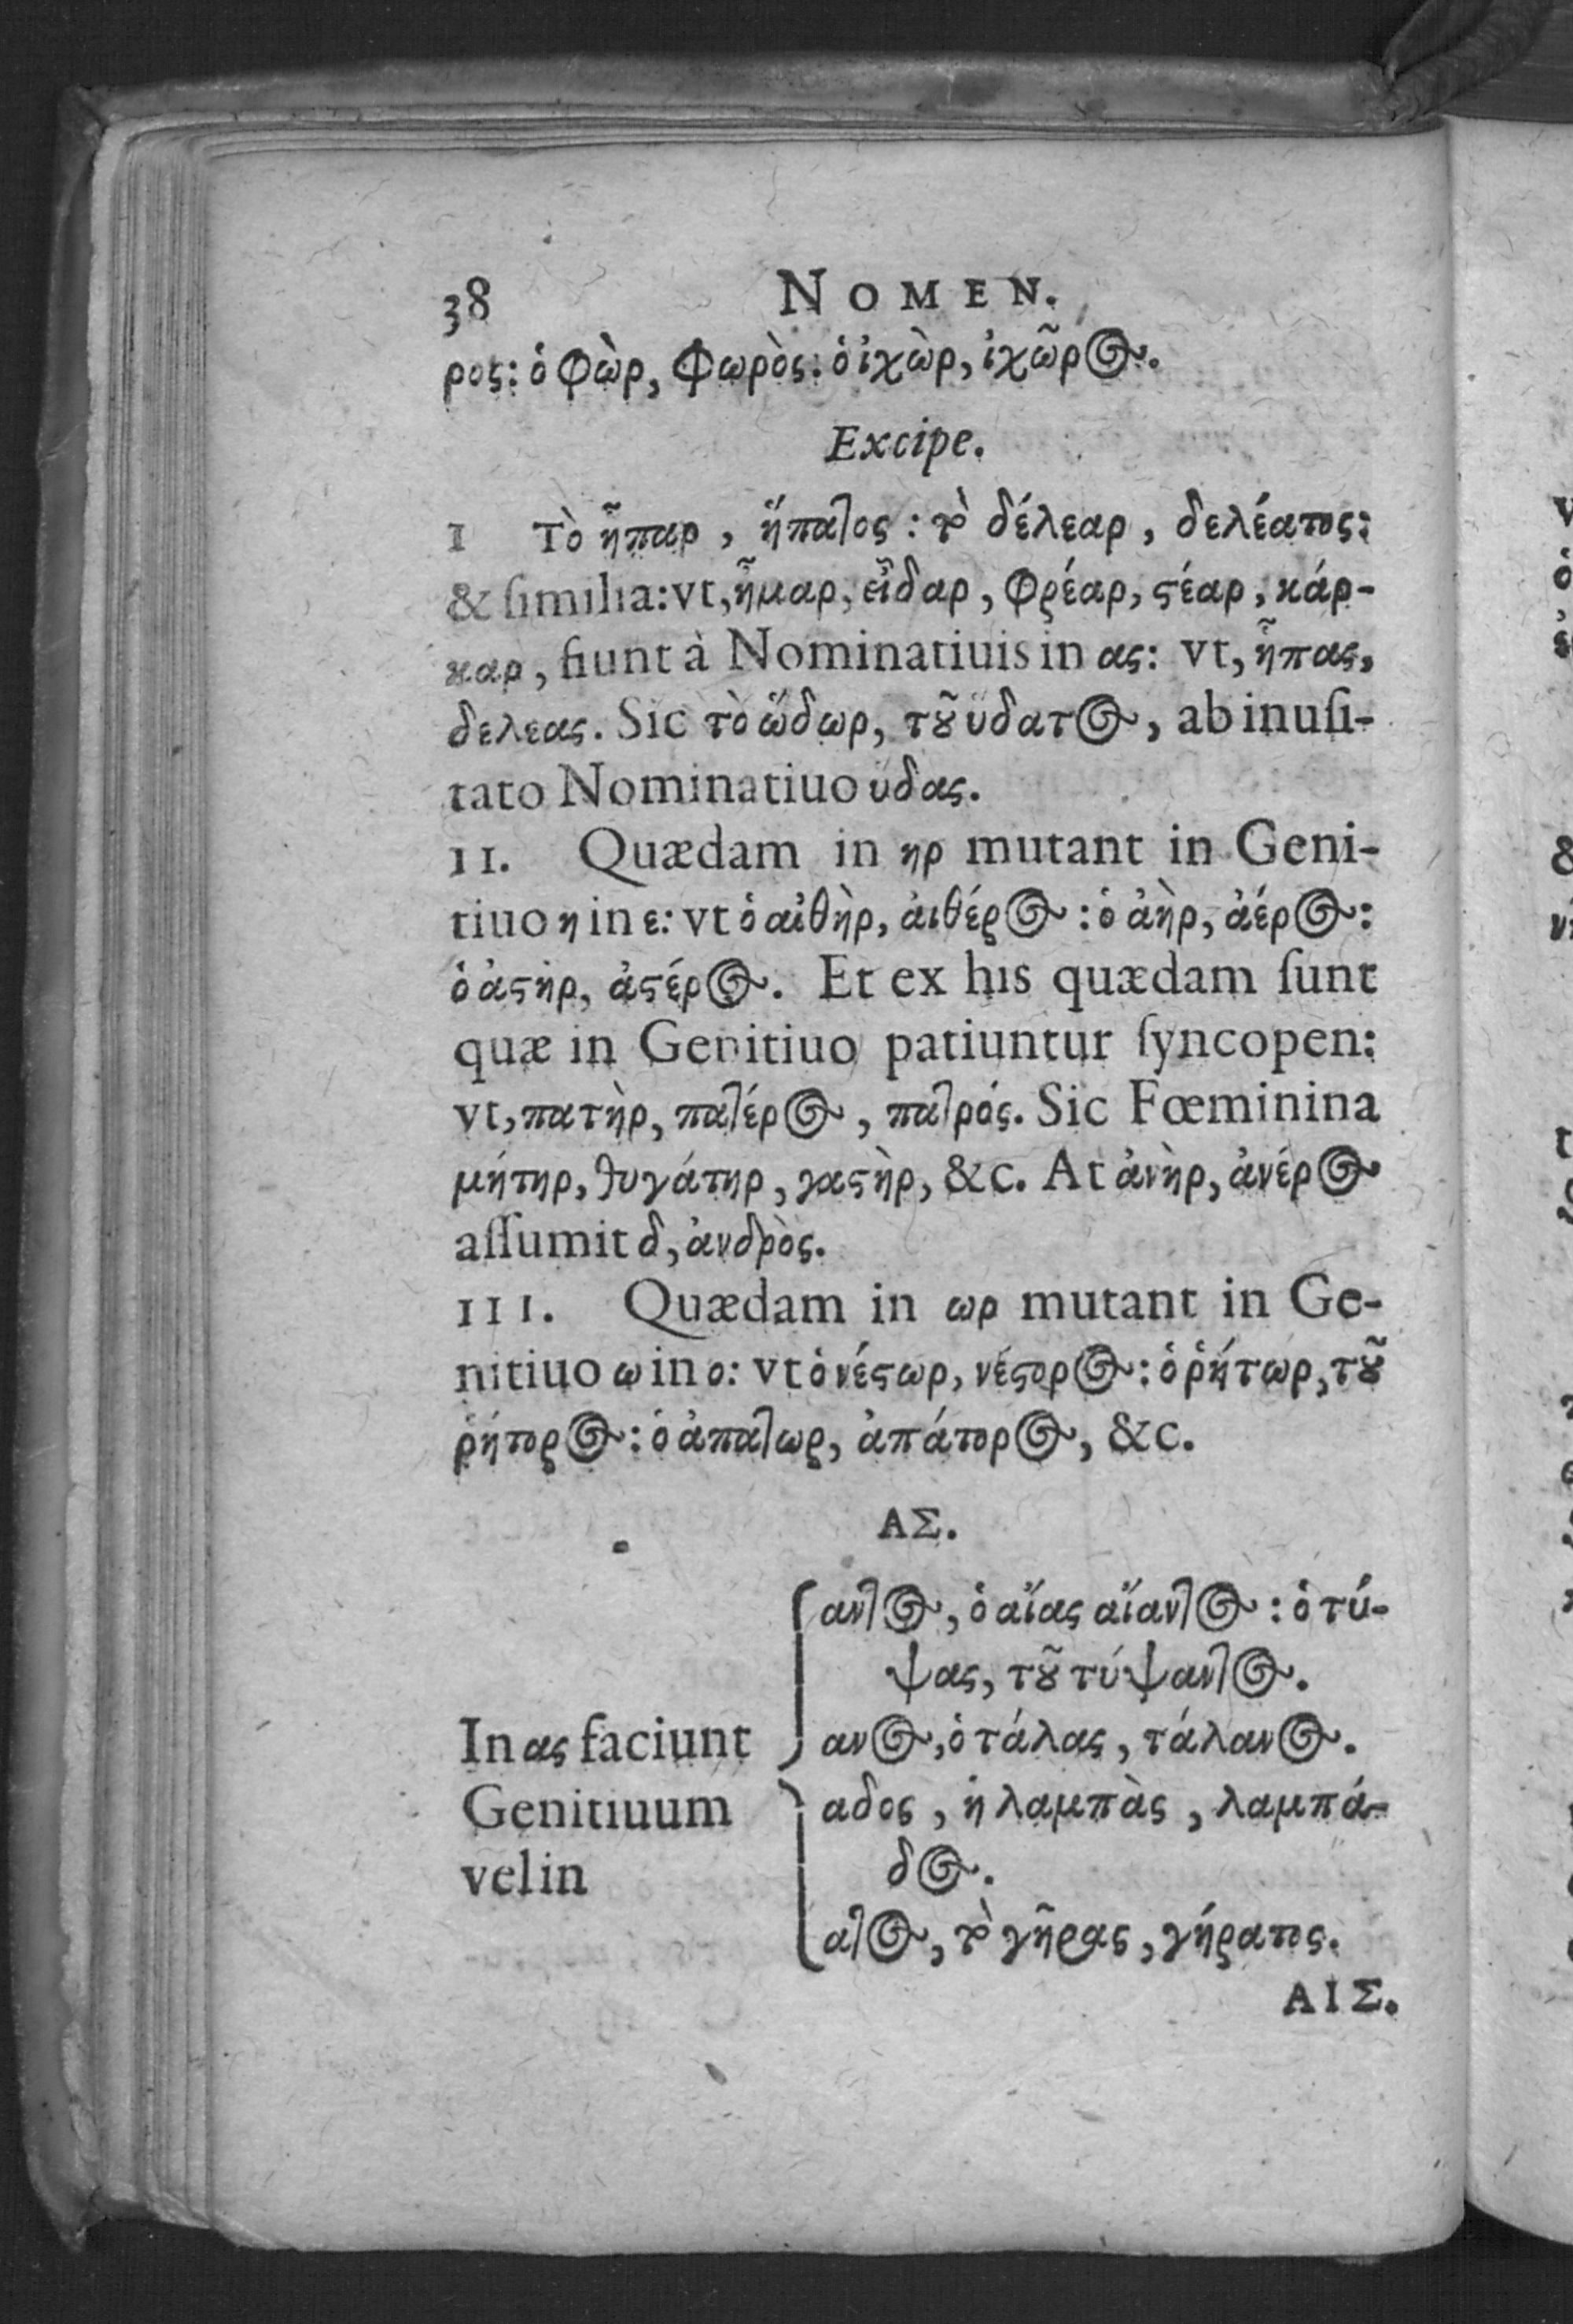 38 NOMEN.
ρος: ὁ φὼρ, φωρὸς: ὁ ἰχὼρ, ἰχῶρος.
Excipe.
I Τὸ ἧπαρ, ἥπατος: τὸ δέλεαρ, δελέατος:
& ſimilia: vt, ἦμαρ, εἶδαρ, φρέαρ, ϛέαρ, κάρ-
καρ, fiunt à Nominatiuis in ας: vt, ἧπας,
δελεας. Sic τὸ ὕδωρ, τȣ͂ ὕδατος, ab inuſi-
tato Nominatiuo ὕδας.
II. Quædam in ηρ mutant in Geni-
tiuo η in ε: vt ὁ αἰθὴρ, ἀιθέρος: ὁ ἀὴρ, ἀέρος:
ὁ ἀϛὴρ, ἀϛέρος. Et ex his quædam ſunt
quæ in Genitiuo patiuntur ſyncopen:
vt, πατὴρ, πατέρος, πατρός. Sic Fœminina
μήτηρ, θυγάτηρ, γαϛὴρ, &c. At ἀνὴρ, ἀνέρος
aſſumit δ, ἀνδρὸς.
III. Quædam in ωρ mutant in Ge-
nitiuo ω in ο: vt ὁ νέϛωρ, νέϛορος: ὁ ῥήτωρ, τȣ͂
ῥήτορος: ὁ ἀπατωρ, ἀπάτορος, &c.
ΑΣ.
αντος, ὁ αἴας αἴαντος: ὁ τύ-
ψας, τȣ͂ τύψαντος.
In ας faciunt ανος, ὁ τάλας, τάλανος.
Genitiuum αδος, ἡ λαμπὰς, λαμπά-
vel in δος.
ατος, τὸ γῆρας, γήρατος.
ΑΙΣ.